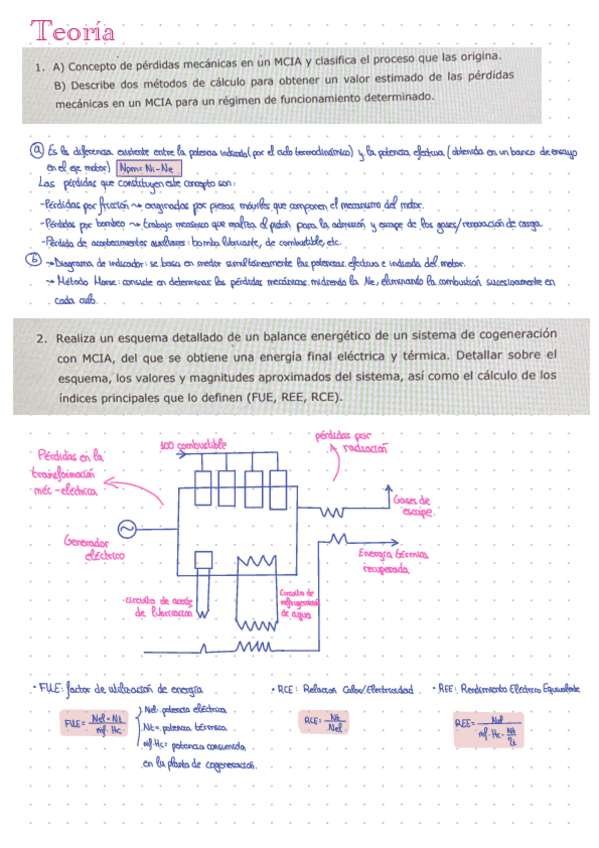 Teoría
1. A) Concepto de pérdidas mecánicas en un MCIA y clasifica el proceso que las origina.
B) Describe dos métodos de cálculo para obtener un valor estimado de las pérdidas
mecánicas en un MCIA para un régimen de funcionamiento determinado.
a) Es la diferencia existente entre la potencia indicada (por el ciclo termodinámico) y la potencia efectiva (obtenida en un banco de ensayo
en el eje motor) Npm= Ni-Ne
Las pérdidas que constituyen este concepto son:
-Pérdidas por fricción → originadas por piezas móviles que componen el mecanismo del motor.
-Pérdidas por bombeo → trabajo mecánico que realiza el pistón para la admisión y escape de los gases/renovación de carga.
-Pérdida de accionamientos auxiliares: bomba lubricante, de combustible, etc.
b) → Diagrama de indicador: se basa en medir simultáneamente las potencias efectiva e indicada del motor.
→ Método Morse: consiste en determinar las pérdidas mecánicas midiendo la Ne, eliminando la combustión sucesivamente en
cada cilindro.
2. Realiza un esquema detallado de un balance energético de un sistema de cogeneración
con MCIA, del que se obtiene una energía final eléctrica y térmica. Detallar sobre el
esquema, los valores y magnitudes aproximados del sistema, así como el cálculo de los
índices principales que lo definen (FUE, REE, RCE).
100 combustible
pérdidas por
radiación
Pérdidas en la
transformación
méc-eléctrica
Gases de
escape.
Generador
eléctrico
Energía térmica
recuperada
circuito de aceite
de lubricación
Circuito de
refrigeración
de agua
· FUE: factor de utilización de energía
· RCE: Relacion Calor/Electricidad.
· REE: Rendimiento Electrico Equivalente
FUE = Nel + Nt / mf·Hc
Nel: potencia eléctrica
Nt = potencia térmica
mf·Hc = potencia consumida
en la planta de cogeneración.
RCE = Nt / Nel
REE = Nel / mf·Hc -